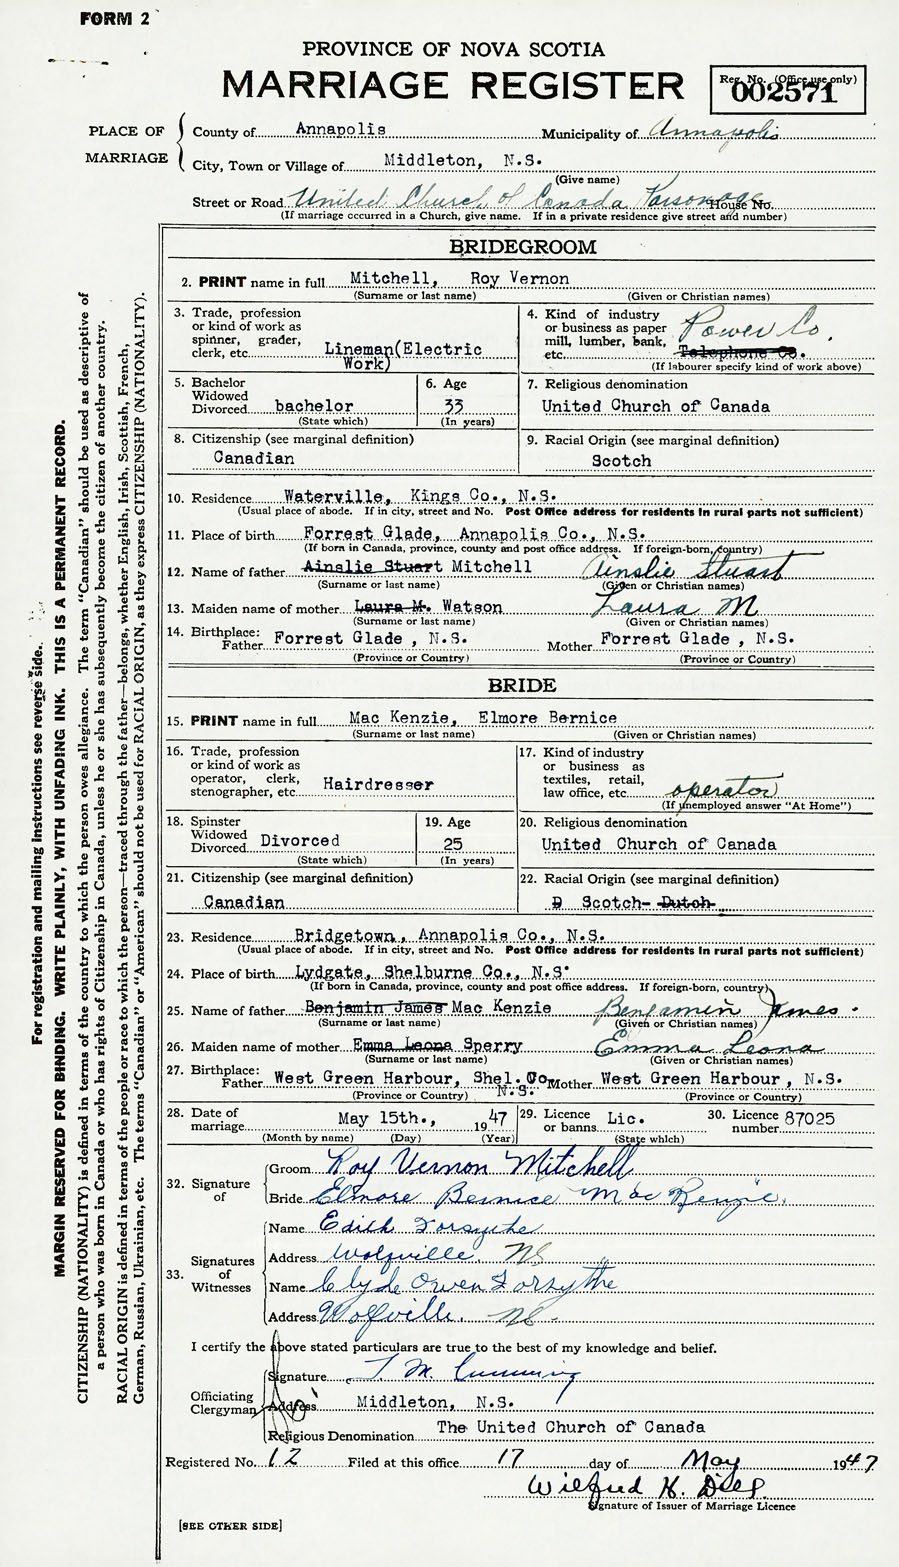 FORM 2
PROVINCE OF NOVA SCOTIA
MARRIAGE REGISTER
Reg. No. (Office use only)
002571
PLACE OF MARRIAGE
County of Annapolis Municipality of Annapolis
City, Town or Village of Middleton, N.S.
(Give name)
Street or Road United Church of Canada Parsonage House No.
(If marriage occurred in a Church, give name. If in a private residence give street and number)
BRIDEGROOM
2. PRINT name in full Mitchell, Roy Vernon
(Surname or last name) (Given or Christian names)
3. Trade, profession or kind of work as spinner, grader, clerk, etc. Lineman(Electric Work)
4. Kind of industry or business as paper mill, lumber, bank, etc. Power Co. Telephone Co.
(If labourer specify kind of work above)
5. Bachelor Widowed Divorced bachelor
(State which)
6. Age 33
(In years)
7. Religious denomination
United Church of Canada
8. Citizenship (see marginal definition)
Canadian
9. Racial Origin (see marginal definition)
Scotch
10. Residence Waterville, Kings Co., N.S.
(Usual place of abode. If in city, street and No. Post Office address for residents in rural parts not sufficient)
11. Place of birth Forrest Glade, Annapolis Co., N.S.
(If born in Canada, province, county and post office address. If foreign-born, country)
12. Name of father Ainslie Stuart Mitchell Ainslie Stuart
(Surname or last name) (Given or Christian names)
13. Maiden name of mother Laura M. Watson Laura M
(Surname or last name) (Given or Christian names)
14. Birthplace: Father Forrest Glade , N.S. Mother Forrest Glade , N.S.
(Province or Country) (Province or Country)
BRIDE
15. PRINT name in full Mac Kenzie, Elmore Bernice
(Surname or last name) (Given or Christian names)
16. Trade, profession or kind of work as operator, clerk, stenographer, etc. Hairdresser
17. Kind of industry or business as textiles, retail, law office, etc. operator
(If unemployed answer "At Home")
18. Spinster Widowed Divorced Divorced
(State which)
19. Age 25
(In years)
20. Religious denomination
United Church of Canada
21. Citizenship (see marginal definition)
Canadian
22. Racial Origin (see marginal definition)
D Scotch- Dutch
23. Residence Bridgetown, Annapolis Co., N.S.
(Usual place of abode. If in city, street and No. Post Office address for residents in rural parts not sufficient)
24. Place of birth Lydgate, Shelburne Co., N.S.
(If born in Canada, province, county and post office address. If foreign-born, country)
25. Name of father Benjamin James Mac Kenzie Benjamin James.
(Surname or last name) (Given or Christian names)
26. Maiden name of mother Emma Leona Sperry Emma Leona
(Surname or last name) (Given or Christian names)
27. Birthplace: Father West Green Harbour, Shel. Co. N.S. Mother West Green Harbour , N.S.
(Province or Country) (Province or Country)
28. Date of marriage May 15th., 1947
(Month by name) (Day) (Year)
29. Licence or banns Lic.
(State which)
30. Licence number 87025
32. Signature of
Groom Roy Vernon Mitchell
Bride Elmore Bernice Mac Kenzie.
33. Signatures of Witnesses
Name Edith Forsythe
Address Wolfville, NS
Name Clyde Owen Forsythe
Address Wolfville, NS.
I certify the above stated particulars are true to the best of my knowledge and belief.
Officiating Clergyman
Signature J. M. Cumming
Address Middleton, N.S.
Religious Denomination The United Church of Canada
Registered No. 12 Filed at this office 17 day of May 1947
Wilfred H. Dill
Signature of Issuer of Marriage Licence
[SEE OTHER SIDE]
For registration and mailing instructions see reverse side.
MARGIN RESERVED FOR BINDING. WRITE PLAINLY, WITH UNFADING INK. THIS IS A PERMANENT RECORD.
CITIZENSHIP (NATIONALITY) is defined in terms of the country to which the person owes allegiance. The term "Canadian" should be used as descriptive of
a person who was born in Canada or who has rights of Citizenship in Canada, unless he or she has subsequently become the citizen of another country.
RACIAL ORIGIN is defined in terms of the people or race to which the person—traced through the father—belongs, whether English, Irish, Scottish, French,
German, Russian, Ukrainian, etc. The terms "Canadian" or "American" should not be used for RACIAL ORIGIN, as they express CITIZENSHIP (NATIONALITY).